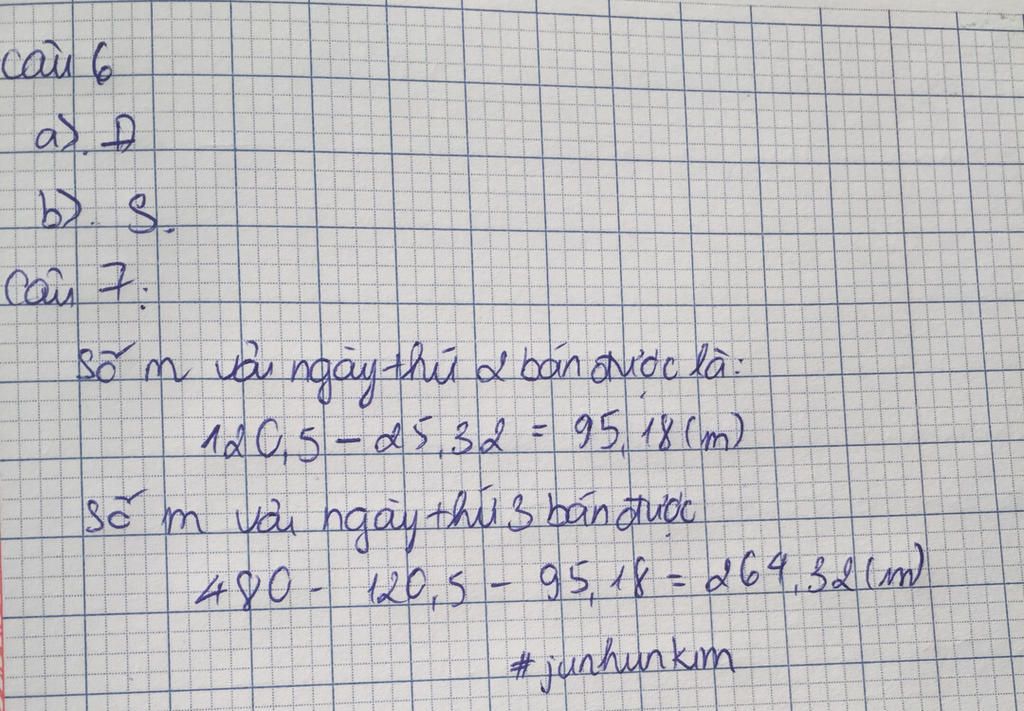 Câu 6
a). Đ
b). S.
Câu 7:
Số m vải ngày thứ 2 bán được là:
120,5 - 25,32 = 95,18 (m)
Số m vải ngày thứ 3 bán được
480 - 120,5 - 95,18 = 264,32 (m)
#junhunkim